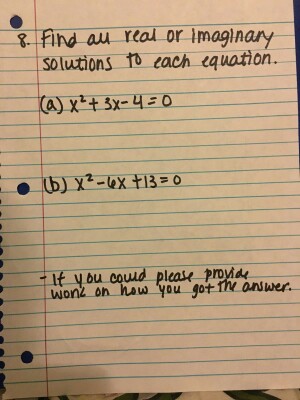 8. Find all real or imaginary
solutions to each equation.
(a) x² + 3x - 4 = 0
(b) x² - 6x + 13 = 0
- If you could please provide
work on how you got the answer.